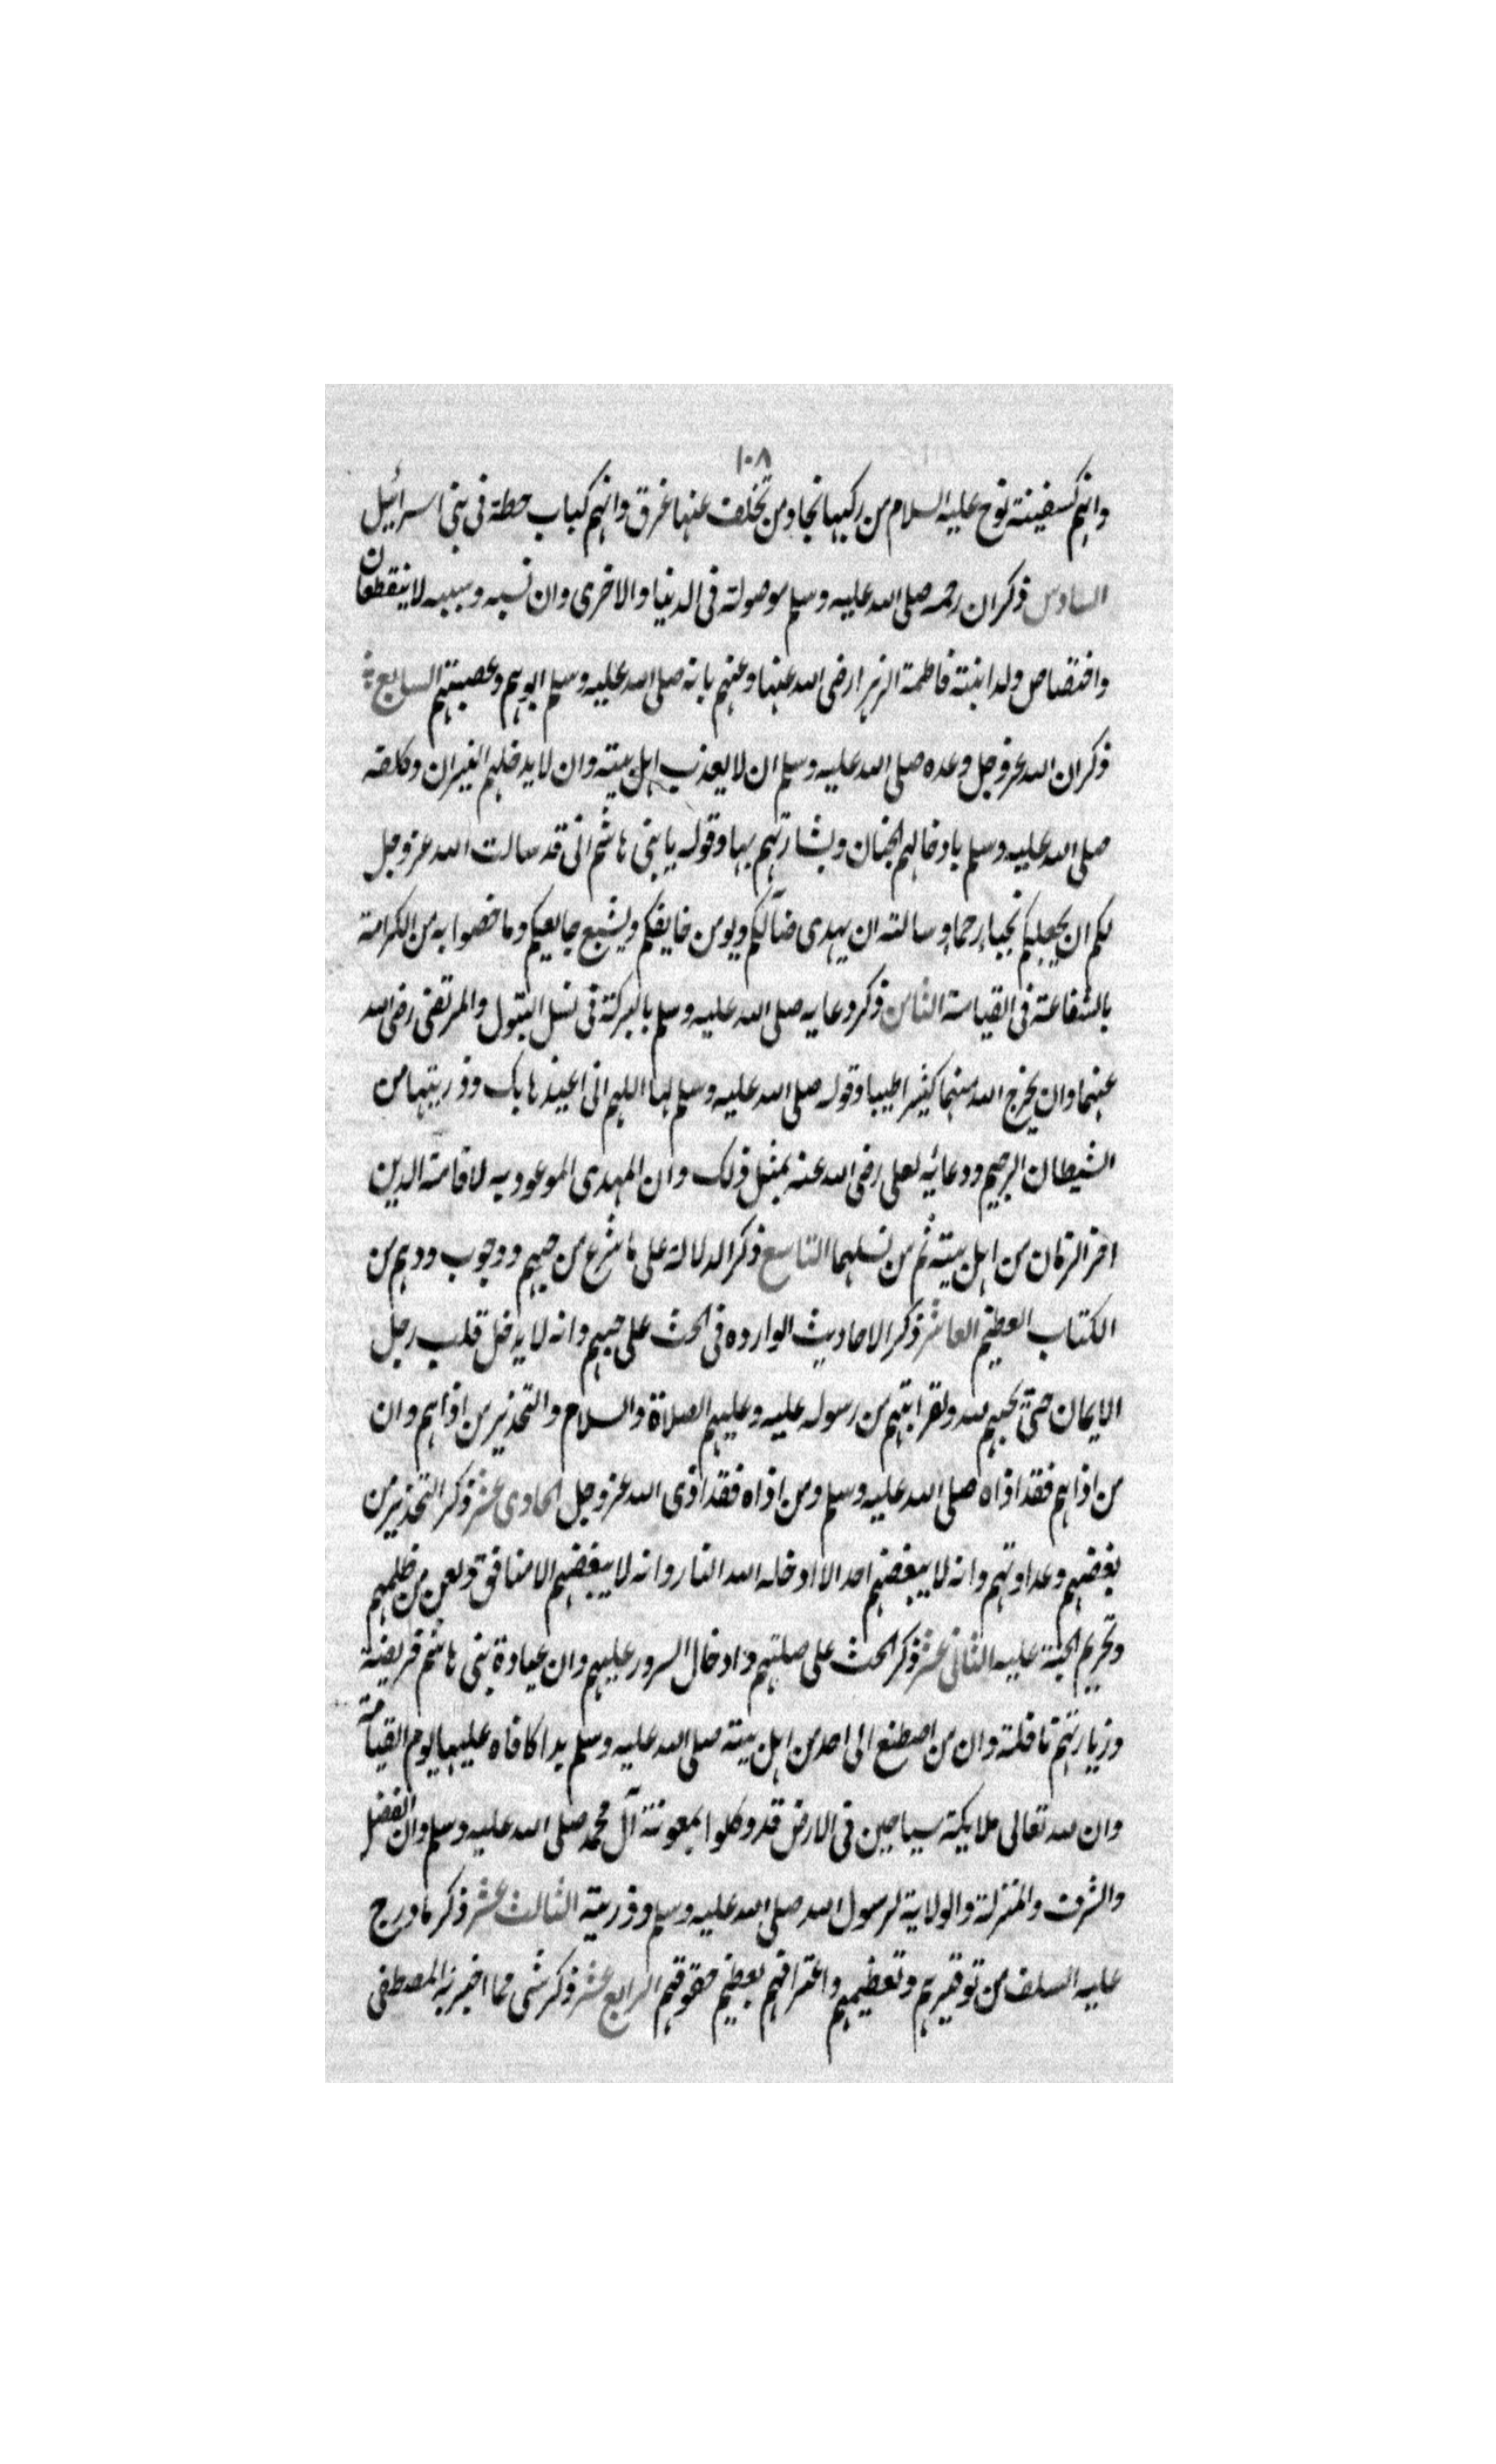 ١٠٨
وانهم كسفينة نوح عليه السلام من ركبها نجا ومن تخلف عنها غرق وانهم كباب حطة فى بنى اسرائيل
السادس ذكر ان رحمه صلى الله عليه وسلم موصولة فى الدنيا والاخرى وان نسبه وسببه لا ينقطعان
واختصاص ولد ابنته فاطمة الزهرا رضى الله عنها وعنهم بانه صلى الله عليه وسلم ابوهم وعصبتهم السابع
ذكر ان الله عز وجل وعده صلى الله عليه وسلم ان لا يعذب اهل بيته وان لا يدخلهم النيران
صلى الله عليه وسلم بادخالهم الجنان وبشارتهم بها وقوله يا بنى هاشم انى قد سالت الله عز وجل
لكم ان يجعلكم نجباء رحماء وسالته ان يهدى ضآلكم ويومن خايفكم ويشبع جايعكم وما خصوا به من الكرامة
بالشفاعة فى القيامة الثامن ذكر دعايه صلى الله عليه وسلم بالبركة فى نسل البتول والمرتضى رضى الله
عنهما وان يخرج الله منهما كثيرا طيبا وقوله صلى الله عليه وسلم لها اللهم انى اعيذها بك وذريتها من
الشيطان الرجيم ودعائه لعلى رضى الله عنه بمثل ذلك وان المهدى الموعود به لاقامة الدين
اخر الزمان من اهل بيته ثم من نسلهما التاسع ذكر الدلالة على ما شرع من حبهم ووجوب ودهم من
الكتاب العظيم العاشر ذكر الاحاديث الوارده فى الحث على حبهم وانه لا يدخل قلب رجل
الايمان حتى يحبهم لله ولقرابتهم من رسوله عليه وعليهم الصلاة والسلام والتحذير من اذاهم وان
من اذاهم فقد اذاه صلى الله عليه وسلم ومن اذاه فقد اذى الله عز وجل الحادى عشر ذكر التحذير من
بغضهم وعداوتهم وانه لا يبغضهم احد الا ادخله الله النار وانه لا يبغضهم الا منافق ولعن من ظلمهم
وتحريم الجنة عليه الثانى عشر ذكر الحث على صلتهم وادخال السرور عليهم وان عيادة بنى هاشم فريضة
وزيارتهم نافلة وان من اصطنع الى احد من اهل بيته صلى الله عليه وسلم يدا كافاه عليها يوم القيامة
وان لله تعالى ملايكة سياحين فى الارض قد وكلوا بمعونة آل محمد صلى الله عليه وسلم وان الفضل
والشرف والمنزلة والولاية لرسول الله صلى الله عليه وسلم وذريته الثالث عشر ذكر ما درج
عليه السلف من توقيرهم وتعظيمهم واعترافهم بعظيم حقوقهم الرابع عشر ذكر شى مما اخبر به المصطفى